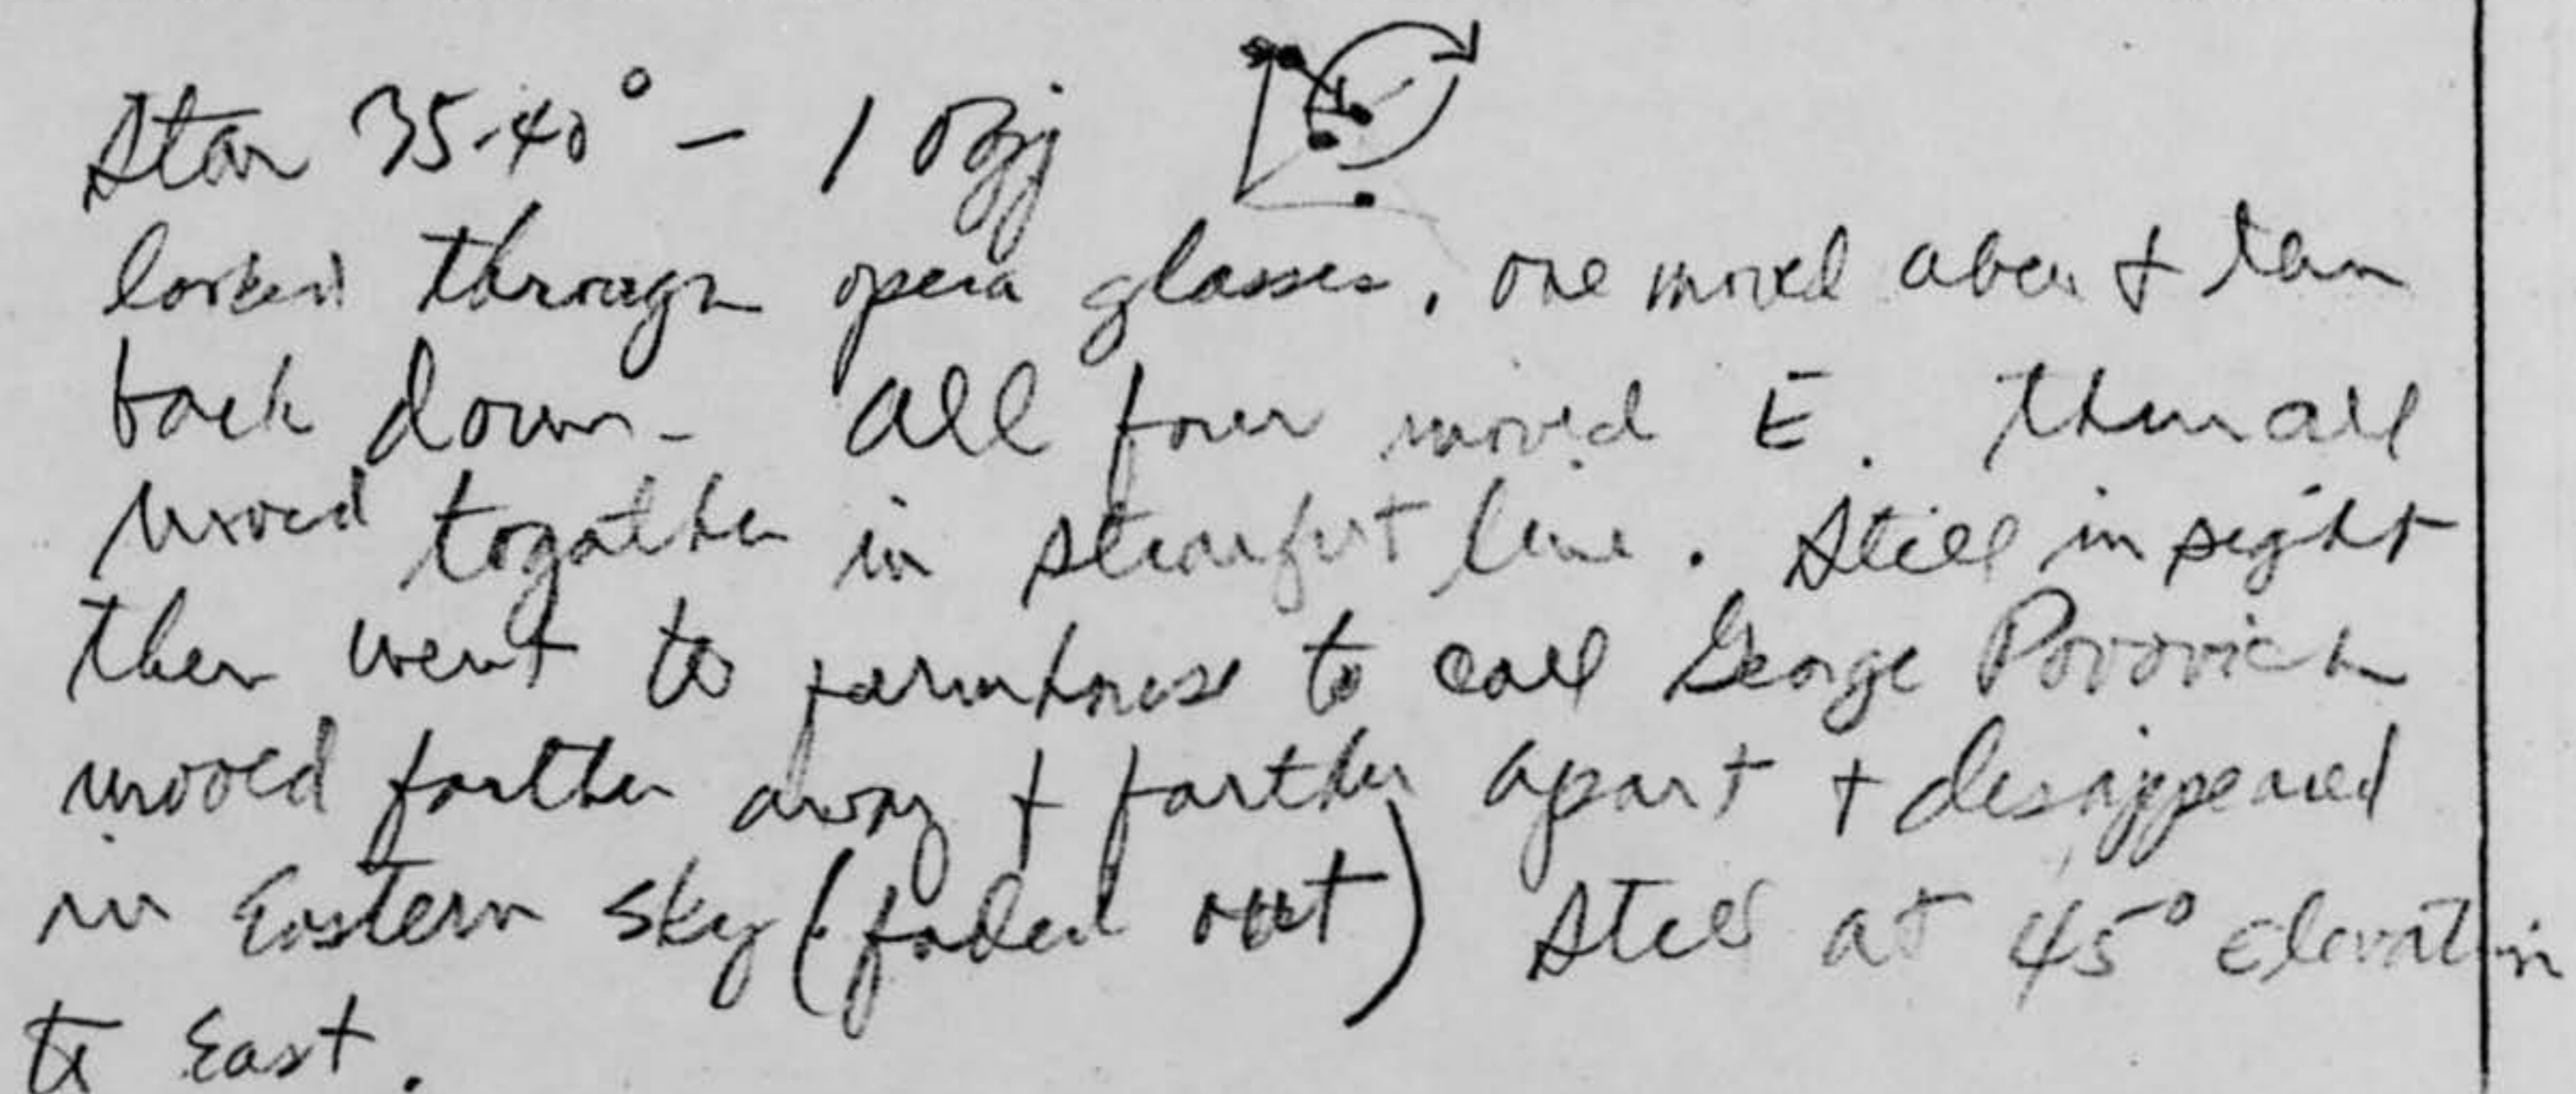 Star 35-40° - 1 Obj
looked through opera glasses. one moved above + then
back down - all four moved E. Then all
moved together in straight line. Still in sight
then went to farmhouse to call George Povovich
moved farther away + farther apart + disappeared
in Eastern sky (faded out) Still at 45° Elevation
to East.